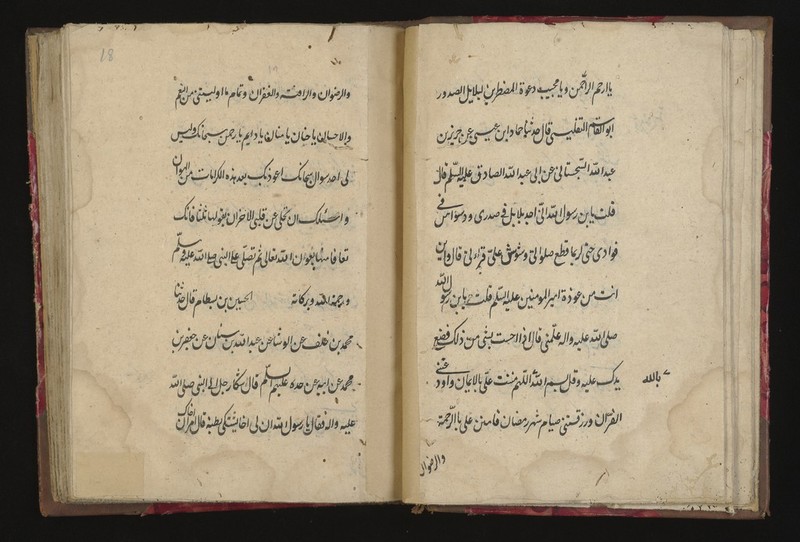 يا ارحم الراحمين ويا مجيب دعوة المضطرين لبلابل الصدور
ابو القاسم التفليسي قال حدثنا حماد ابن عيسى عن حريز بن
عبد الله السجستاني عن ابي عبد الله الصادق عليه السلم قال
قلت يابن رسول الله اني اجد بلابل في صدري ووساوس في
فوادي حتى لربما قطع صلواتي وشوش علي قراءتي قال واين
انت من عوذة امير المومنين عليه السلم قلت يابن رسول الله
صلى الله عليه واله علمني قال اذا احست بشي من ذلك فضع
يدك عليه وقل بسم الله وبالله اللهم مننت علي بالايمان واودعتني
القرآن ورزقتني صيام شهر رمضان فامنن علي بالرحمة
والرضوان
18
والرضوان والرافة والغفران وتمام ما اوليتني من النعم
والاحسان يا حنان يا منان يا دايم يا رحمن سبحانك وليس
لي احد سواك سبحانك اعوذ بك بعد هذه الكرامات من الهوان
واسئلك ان تجلي عن قلبي الاحزان تقولها ثلثا فانك
تعافا منها بعون الله تعالى ثم تصلي على النبي صلى الله عليه وسلم
ورحمة الله وبركاته الحسين بن بسطام قال حدثنا
محمد بن خلف عن الوشا عن عبد الله بن سنان عن جعفر بن
محمد عن ابيه عن جده عليهم السلم قال شكا رجل الى النبي صلى الله
عليه واله فقال يا رسول الله ان لي اخا يشتكي بطنه قال مر اخاك